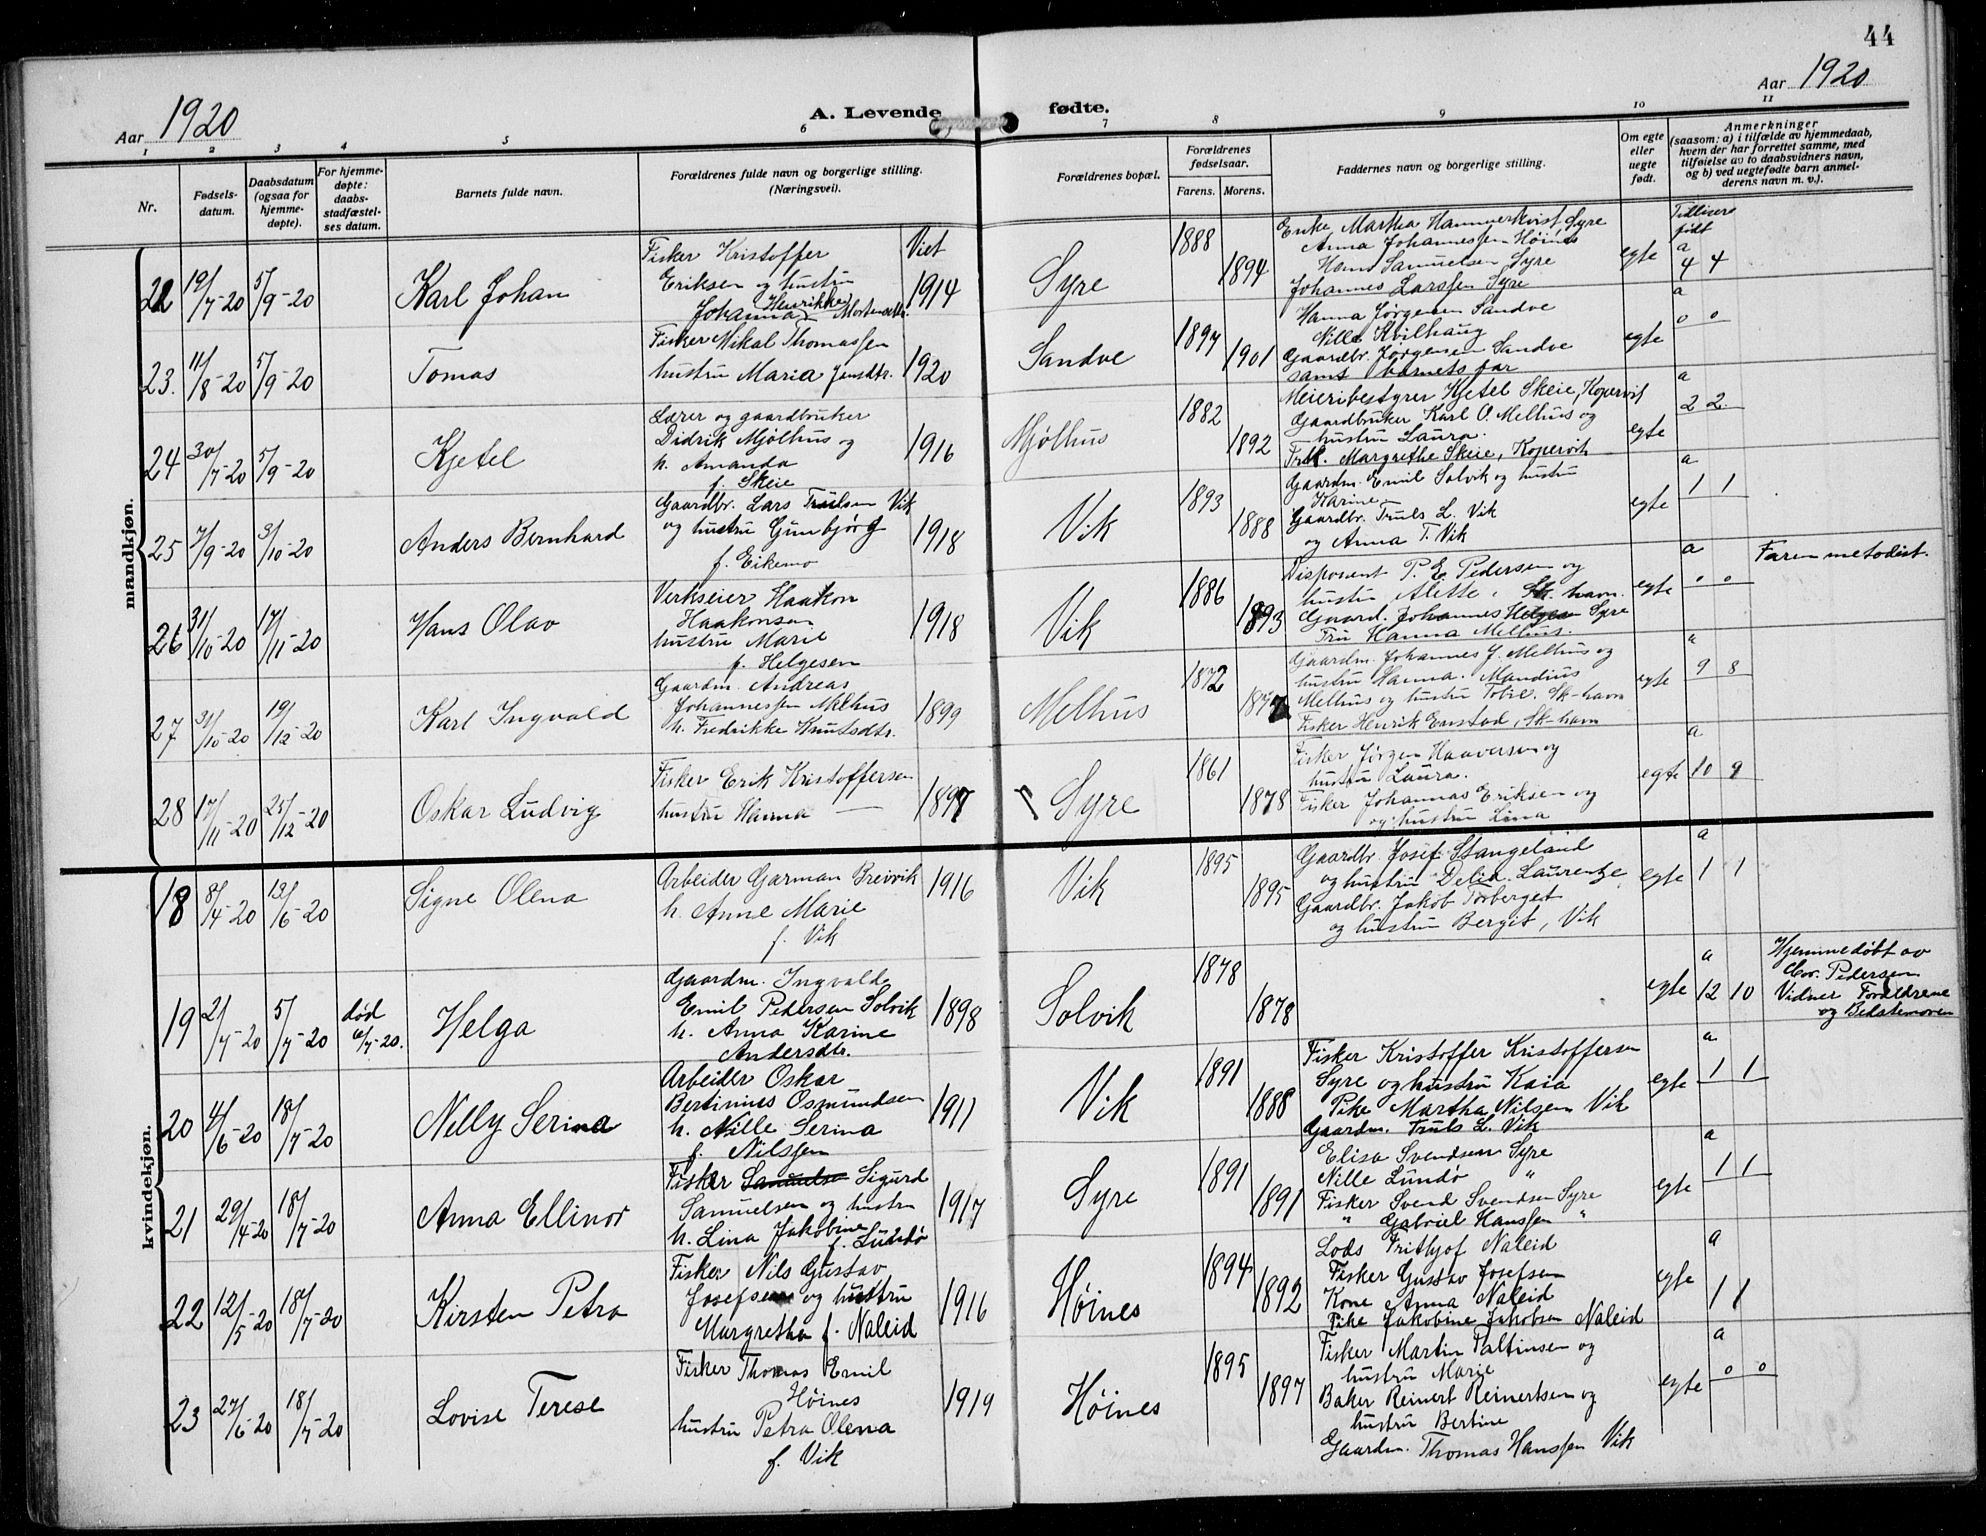 44
Aar 1920
A. Levende fødte.
Aar 1920
1 2 3 4 5 6 7 8 9 10 11
Nr.
Fødsels-
datum.
Daabsdatum
(ogsaa for
hjemme-
døpte).
For hjemme-
døpte:
daabs-
stadfæstel-
ses datum.
Barnets fulde navn.
Forældrenes fulde navn og borgerlige stilling.
(Næringsvei).
Forældrenes bopæl.
Forældrenes
fødselsaar.
Farens. Morens.
Faddernes navn og borgerlige stilling.
Om egte
eller
uegte
født.
Anmerkninger
(saasom: a) i tilfælde av hjemmedaab,
hvem der har forrettet samme, med
tilføielse av to daabsvidners navn,
og b) ved uegtefødte barn anmel-
derens navn m. v.).
mandkjøn.
Viet
Tidligere
født
22 19/7-20 5/9-20 Karl Johan
Fisker Kristoffer
Eriksen og hustru
Henrikke
Johanna Mortensdtr.
1914 Syre 1888 1894
Enke Martha Hammerkvist Syre
Anna Johannessen Høines
Hans Samuelsen Syre
Johannes Larssen Syre
egte a 4 4
23. 11/8-20 5/9-20 Tomas
Fisker Mikal Thomassen
hustru Maria Jensdtr.
1920 Sandve 1897 1901
Hanna Jørgensen Sandve
Nille Kvilhaug
Gaardbr. Jørgensen Sandve
samt barnets far
egte a 0 0
24 30/7-20 5/9-20 Kjetel
Lærer og gaardbruker
Didrik Mjølhus og
h. Amanda
f. Skeie
1916 Mjølhus 1882 1892
Meieribestyrer Kjetel Skeie, Kopervik
Gaardbruker Karl O. Melhus og
hustru Laura.
Frk. Margrethe Skeie, Kopervik
egte a 2 2.
25 7/9-20 3/10-20 Anders Bernhard
Gaardbr. Lars Trulsen Vik
og hustru Gunbjørg
f. Eikemo
1918 Vik 1893 1888
Gaardm. Emil Solvik og hustru
Karine
Gaardbr. Truls L. Vik
og Anna T. Vik
egte a 1 1
26 31/10-20 17/11-20 Hans Olav
Verkseier Haakon
Haakonsen
hustru Marie
f. Helgesen
1918 Vik 1886 1893
Disponent P. E. Pedersen og
hustru Alette, Sk. havn.
Gaard. Johannes Helgesen Syre
Fru Hanna Melhus.
egte a 0 0
Faren metodist.
27 31/10-20 19/12-20 Karl Ingvald
Gaardm. Andreas
Johannessen Melhus
h. Fredrikke Knutsdtr.
1899 Melhus 1872 1877
Gaardm. Johannes J. Melhus og
hustru Hanna. Mandius
Melhus og hustru Tobie. Sk-havn
Fisker Henrik Enstad, Sk-havn
egte a 9 8
28 17/11-20 25/12-20 Oskar Ludvig
Fisker Erik Kristoffersen
hustru Hanna —
1897 Syre 1861 1878
Fisker Jørgen Haaversen og
hustru Laura.
Fisker Johannas Eriksen og
og hustru Lina
egte a 10 9
kvindekjøn.
18 8/4-20 13/6-20 Signe Olena
Arbeider Garman Breivik
h. Anne Marie
f. Vik
1916 Vik 1895 1895
Gaardbr. Josef Stangeland
og hustru Delia Laurentze
Gaardbr. Jakob Torberget
og hustru Berget, Vik
egte a 1 1
19 2/7-20 5/7-20 død
6/7-20. Helga
Gaardm. Ingvald
Emil Pedersen Solvik
h. Anna Karine
Andersdtr.
1898 Solvik 1878 1878
egte a 12 10
Hjemmedøbt av
Cor. Pedersen
Vidner Forældrene
og Bedstemoren
20 4/6-20 18/7-20 Nelly Serina
Arbeider Oskar
Bertinius Osmundsen
h. Nille Serina
f. Nilssen
1911 Vik 1891 1888
Fisker Kristoffer Kristoffersen
Syre og hustru Kaia
Pike Martha Nilsen Vik
Gaardm. Truls L. Vik
egte a 1 1
21 29/4-20 18/7-20 Anna Ellinor
Fisker Samuelse Sigurd
Samuelsen og hustru
h. Lina Jakobine
f. Lundø
1917 Syre 1891 1891
Elisa Svendsen Syre
Nille Lundø "
Fisker Svend Svendsen Syre
" Gabriel Hanssen "
egte a 1 1
22 12/5-20 18/7-20 Kirsten Petra
Fisker Nils Gustav
Josefsen og hustru
Margretha f. Naleid
1916 Høines 1894 1892
Lods Frithjof Naleid
Fisker Gustav Josefsen
Kone Anna Naleid
Pike Jakobine Jakobsen Naleid
egte a 1 1
23 27/6-20 18/7-20 Lovise Terese
Fisker Thomas Emil
Høines
hustru Petra Olena
f. Vik
1919 Høines 1895 1897
Fisker Martin Paltinsen og
hustru Marie
Baker Reinert Reinertsen og
hustru Bertine
Gaardm. Thomas Hanssen Vik
egte a 0 0